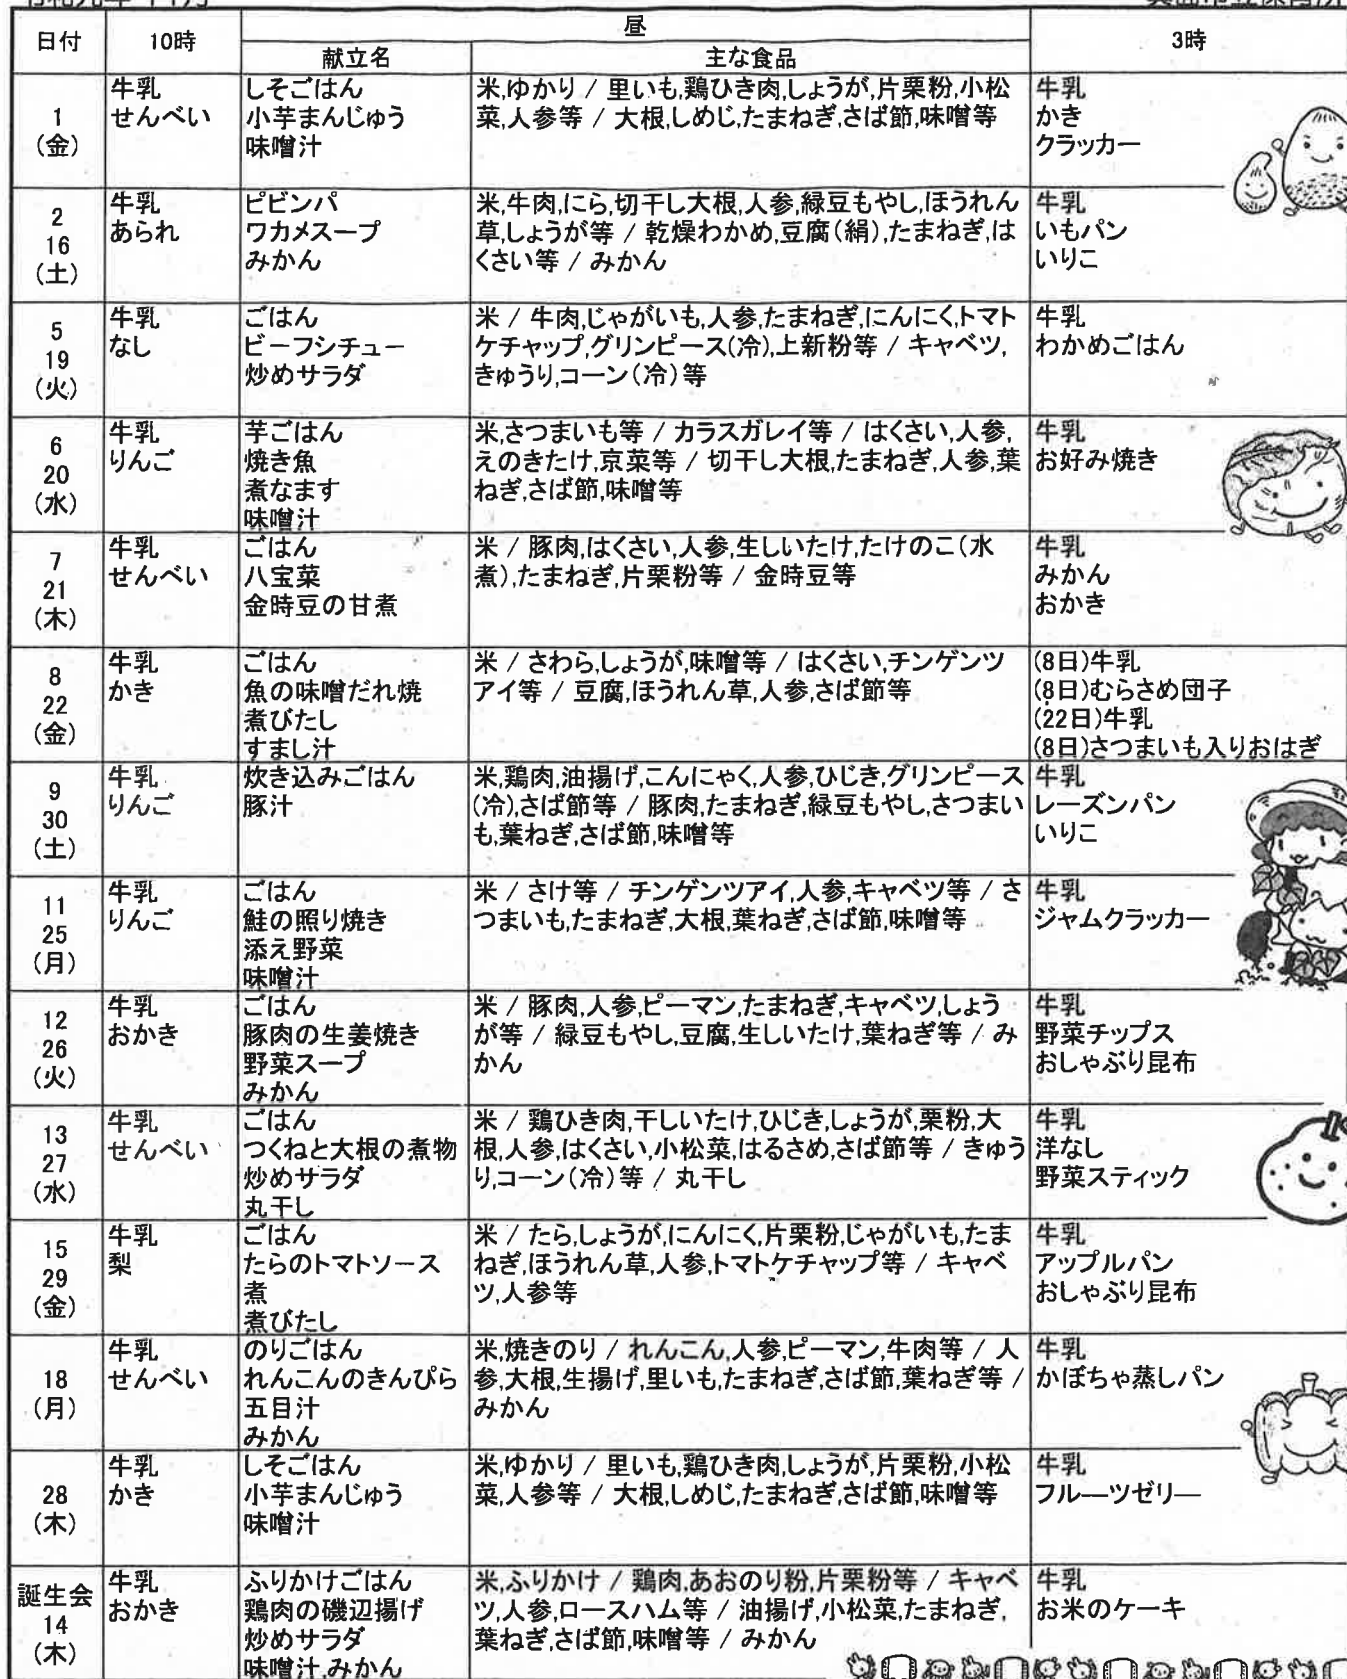 日付 10時 昼 3時
献立名 主な食品
1
(金)
牛乳
せんべい
しそごはん
小芋まんじゅう
味噌汁
米,ゆかり / 里いも,鶏ひき肉,しょうが,片栗粉,小松
菜,人参等 / 大根,しめじ,たまねぎ,さば節,味噌等
牛乳
かき
クラッカー
2
16
(土)
牛乳
あられ
ピビンパ
ワカメスープ
みかん
米,牛肉,にら,切干し大根,人参,緑豆もやし,ほうれん
草,しょうが等 / 乾燥わかめ,豆腐(絹),たまねぎ,は
くさい等 / みかん
牛乳
いもパン
いりこ
5
19
(火)
牛乳
なし
ごはん
ビーフシチュー
炒めサラダ
米 / 牛肉,じゃがいも,人参,たまねぎ,にんにく,トマト
ケチャップ,グリンピース(冷),上新粉等 / キャベツ,
きゅうり,コーン(冷)等
牛乳
わかめごはん
6
20
(水)
牛乳
りんご
芋ごはん
焼き魚
煮なます
味噌汁
米,さつまいも等 / カラスガレイ等 / はくさい,人参,
えのきたけ,京菜等 / 切干し大根,たまねぎ,人参,葉
ねぎ,さば節,味噌等
牛乳
お好み焼き
7
21
(木)
牛乳
せんべい
ごはん
八宝菜
金時豆の甘煮
米 / 豚肉,はくさい,人参,生しいたけ,たけのこ(水
煮),たまねぎ,片栗粉等 / 金時豆等
牛乳
みかん
おかき
8
22
(金)
牛乳
かき
ごはん
魚の味噌だれ焼
煮びたし
すまし汁
米 / さわら,しょうが,味噌等 / はくさい,チンゲンツ
アイ等 / 豆腐,ほうれん草,人参,さば節等
(8日)牛乳
(8日)むらさめ団子
(22日)牛乳
(8日)さつまいも入りおはぎ
9
30
(土)
牛乳
りんご
炊き込みごはん
豚汁
米,鶏肉,油揚げ,こんにゃく,人参,ひじき,グリンピース
(冷),さば節等 / 豚肉,たまねぎ,緑豆もやし,さつまい
も,葉ねぎ,さば節,味噌等
牛乳
レーズンパン
いりこ
11
25
(月)
牛乳
りんご
ごはん
鮭の照り焼き
添え野菜
味噌汁
米 / さけ等 / チンゲンツアイ,人参,キャベツ等 / さ
つまいも,たまねぎ,大根,葉ねぎ,さば節,味噌等
牛乳
ジャムクラッカー
12
26
(火)
牛乳
おかき
ごはん
豚肉の生姜焼き
野菜スープ
みかん
米 / 豚肉,人参,ピーマン,たまねぎ,キャベツ,しょう
が等 / 緑豆もやし,豆腐,生しいたけ,葉ねぎ等 / み
かん
牛乳
野菜チップス
おしゃぶり昆布
13
27
(水)
牛乳
せんべい
ごはん
つくねと大根の煮物
炒めサラダ
丸干し
米 / 鶏ひき肉,干しいたけ,ひじき,しょうが,栗粉,大
根,人参,はくさい,小松菜,はるさめ,さば節等 / きゅう
り,コーン(冷)等 / 丸干し
牛乳
洋なし
野菜スティック
15
29
(金)
牛乳
梨
ごはん
たらのトマトソース
煮
煮びたし
米 / たら,しょうが,にんにく,片栗粉,じゃがいも,たま
ねぎ,ほうれん草,人参,トマトケチャップ等 / キャベ
ツ,人参等
牛乳
アップルパン
おしゃぶり昆布
18
(月)
牛乳
せんべい
のりごはん
れんこんのきんぴら
五目汁
みかん
米,焼きのり / れんこん,人参,ピーマン,牛肉等 / 人
参,大根,生揚げ,里いも,たまねぎ,さば節,葉ねぎ等 /
みかん
牛乳
かぼちゃ蒸しパン
28
(木)
牛乳
かき
しそごはん
小芋まんじゅう
味噌汁
米,ゆかり / 里いも,鶏ひき肉,しょうが,片栗粉,小松
菜,人参等 / 大根,しめじ,たまねぎ,さば節,味噌等
牛乳
フルーツゼリー
誕生会
14
(木)
牛乳
おかき
ふりかけごはん
鶏肉の磯辺揚げ
炒めサラダ
味噌汁,みかん
米,ふりかけ / 鶏肉,あおのり粉,片栗粉等 / キャベ
ツ,人参,ロースハム等 / 油揚げ,小松菜,たまねぎ,
葉ねぎ,さば節,味噌等 / みかん
牛乳
お米のケーキ